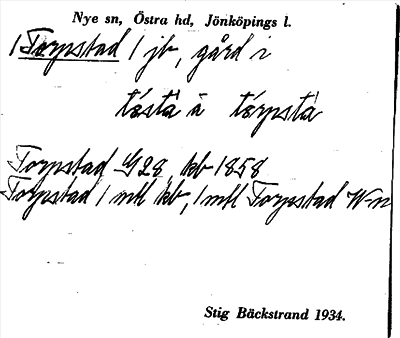 Nye sn, Östra hd, Jönköpings l.
1 Torpstad 1 jb, gård i
tåsta å tórpsta
Torpstad G28, kb 1858
Torpstad 1 mtl kb, 1 mtl Torpstad W-n
Stig Bäckstrand 1934.